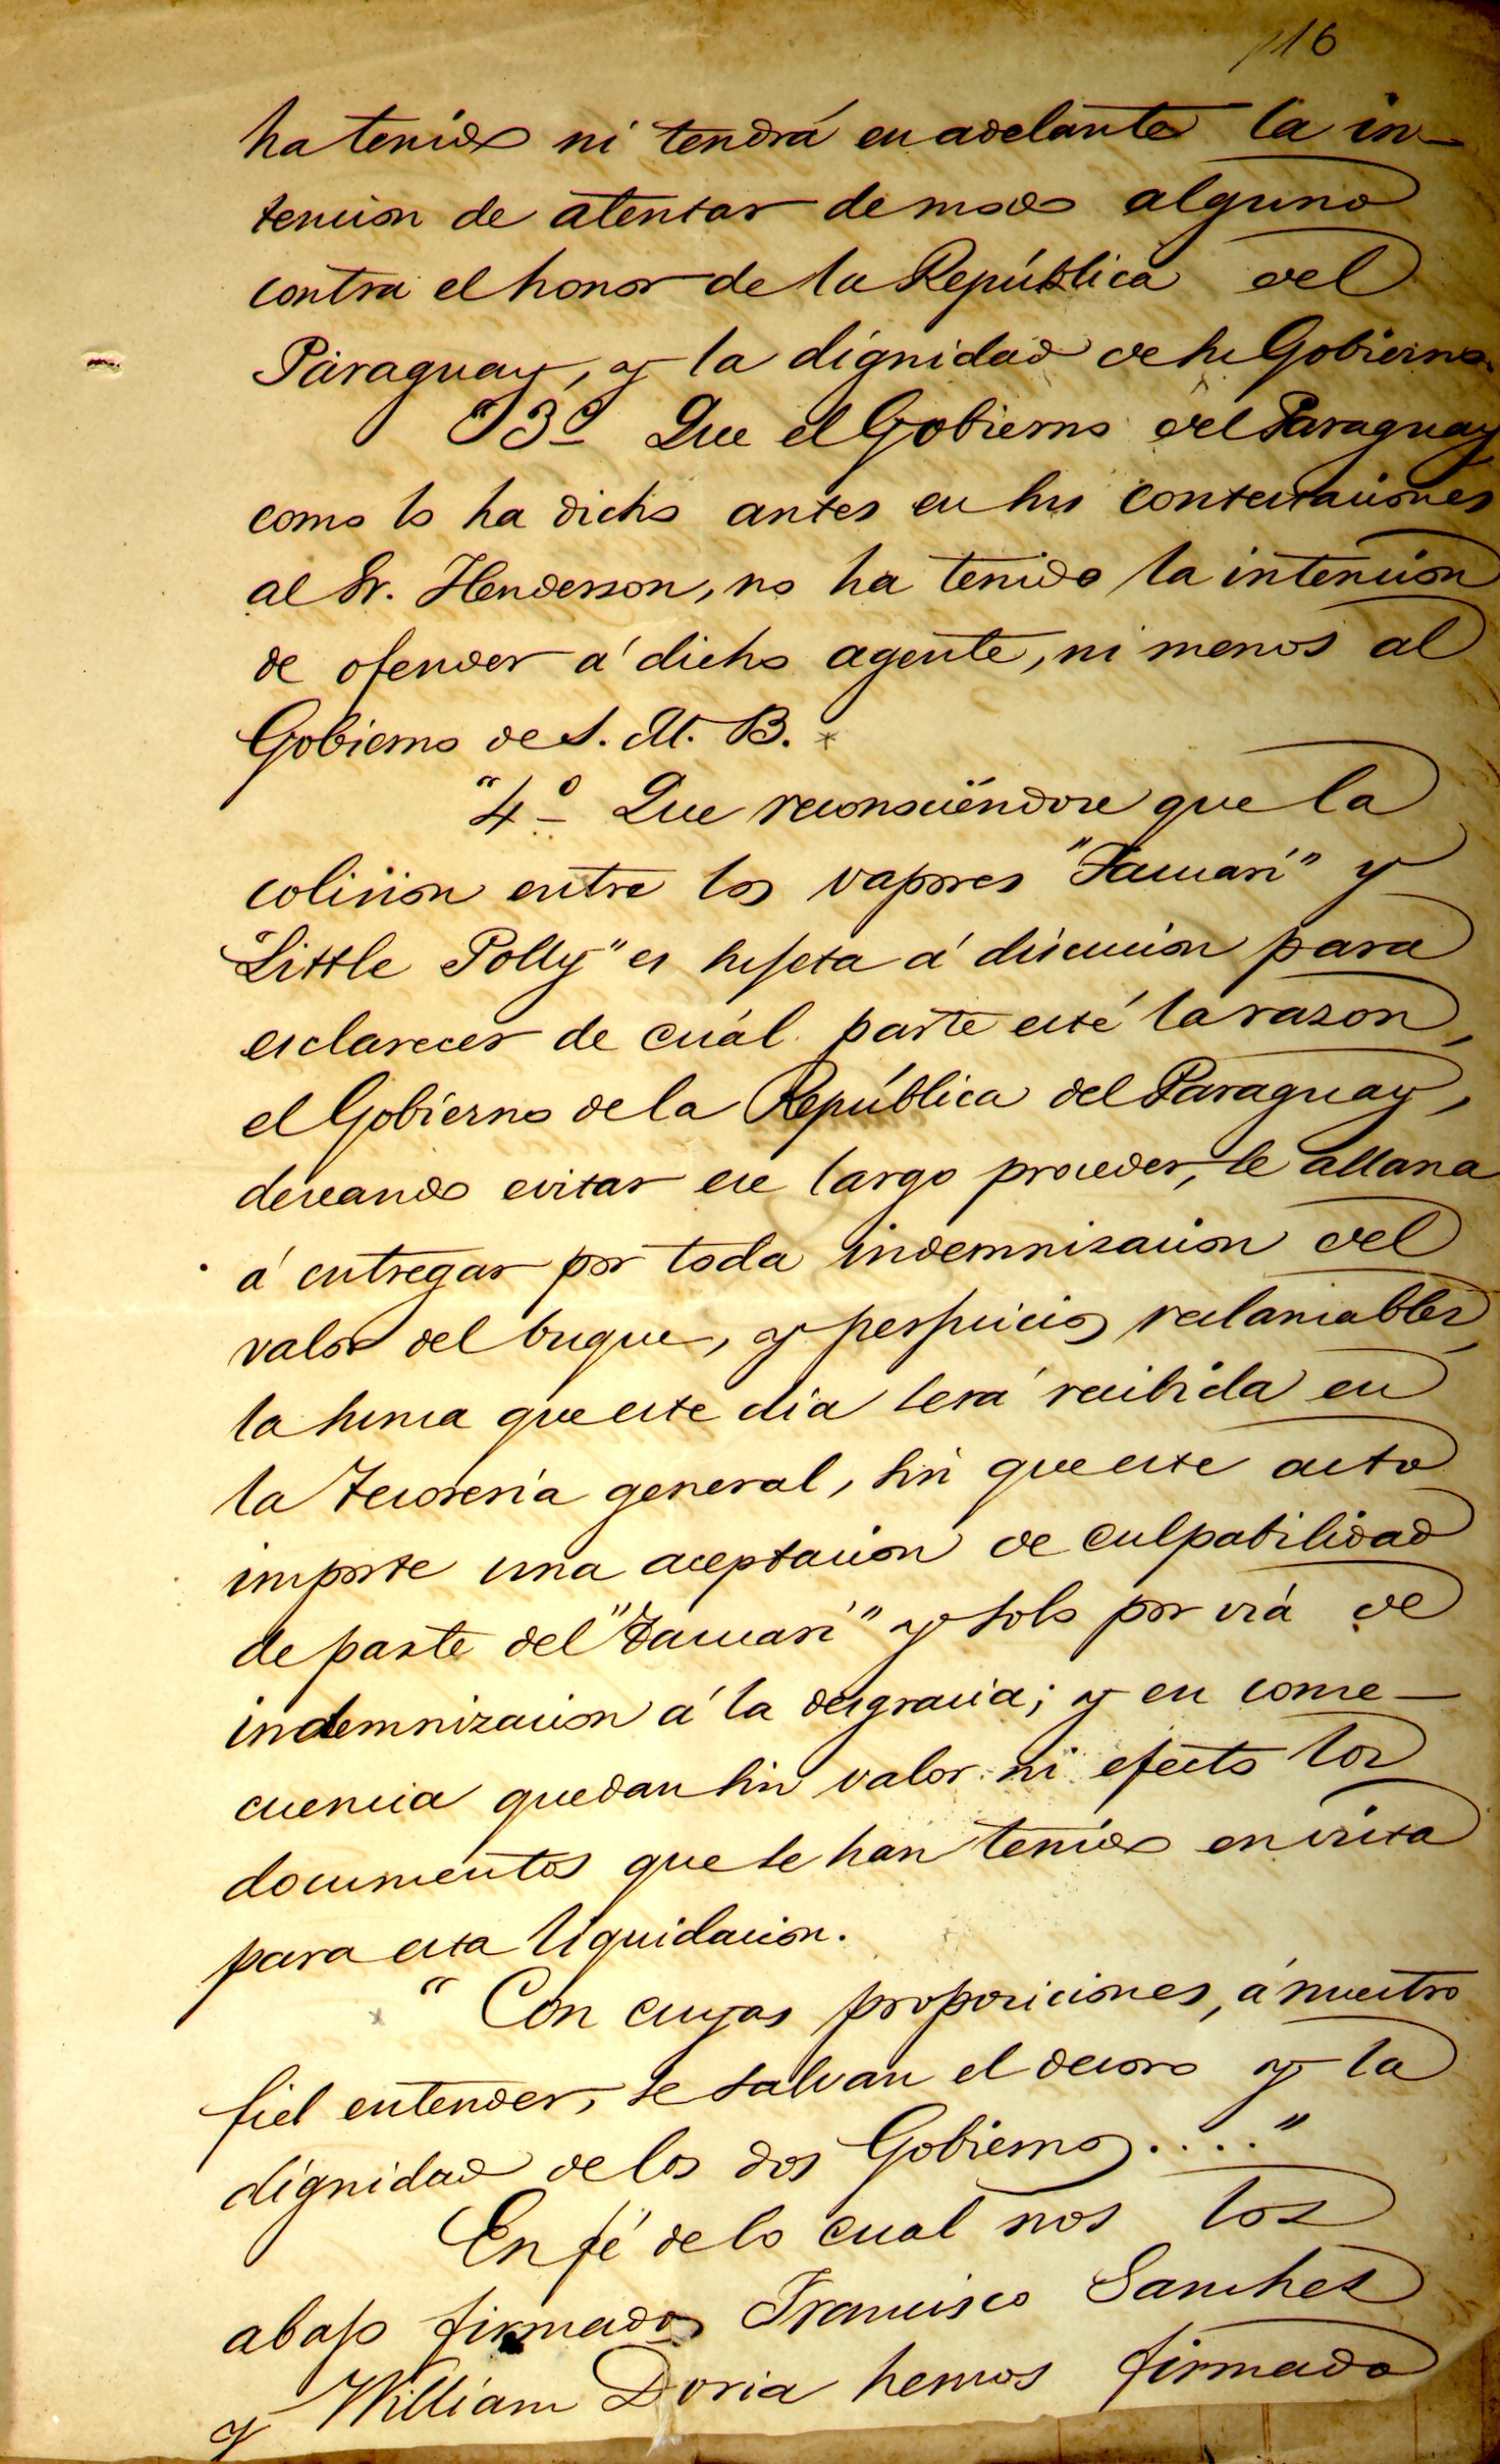 116
ha tenido ni tendrá en adelante la in-
tencion de atentar de modo alguno
contra el honor de la República del
Paraguay, y la dignidad de su Gobierno.
"3º Que el Gobierno del Paraguay
como lo ha dicho antes en sus contestaciones
al Sr. Henderson, no ha tenido la intencion
de ofender á dicho agente, ni menos al
Gobierno de S. M. B.
"4º Que reconociéndose que la
colision entre los vapores "Tacuarí" y
"Little Polly" es sujeta á discucion para
esclarecer de cuál parte esté la razon,
el Gobierno de la República del Paraguay,
deseando evitar ese largo proceder, se allana
á entregar por toda indemnisacion del
valor del buque, y perjuicios reclamables,
la suma que este dia será recibida en
la Tesorería general, sin que este acto
importe una aceptacion de culpabilidad
de parte del "Tacuarí" y solo por via de
indemnizacion á la desgracia; y en conse-
cuencia quedan sin valor ni efecto los
documentos que se han tenido en vista
para esta liquidacion.
" Con cuyas proposiciones, á nuestro
fiel entender, se salvan el decoro y la
dignidad de los dos Gobiernos...."
En fé de lo cual nos los
abajo firmados Francisco Sanches
y William Doria hemos firmado